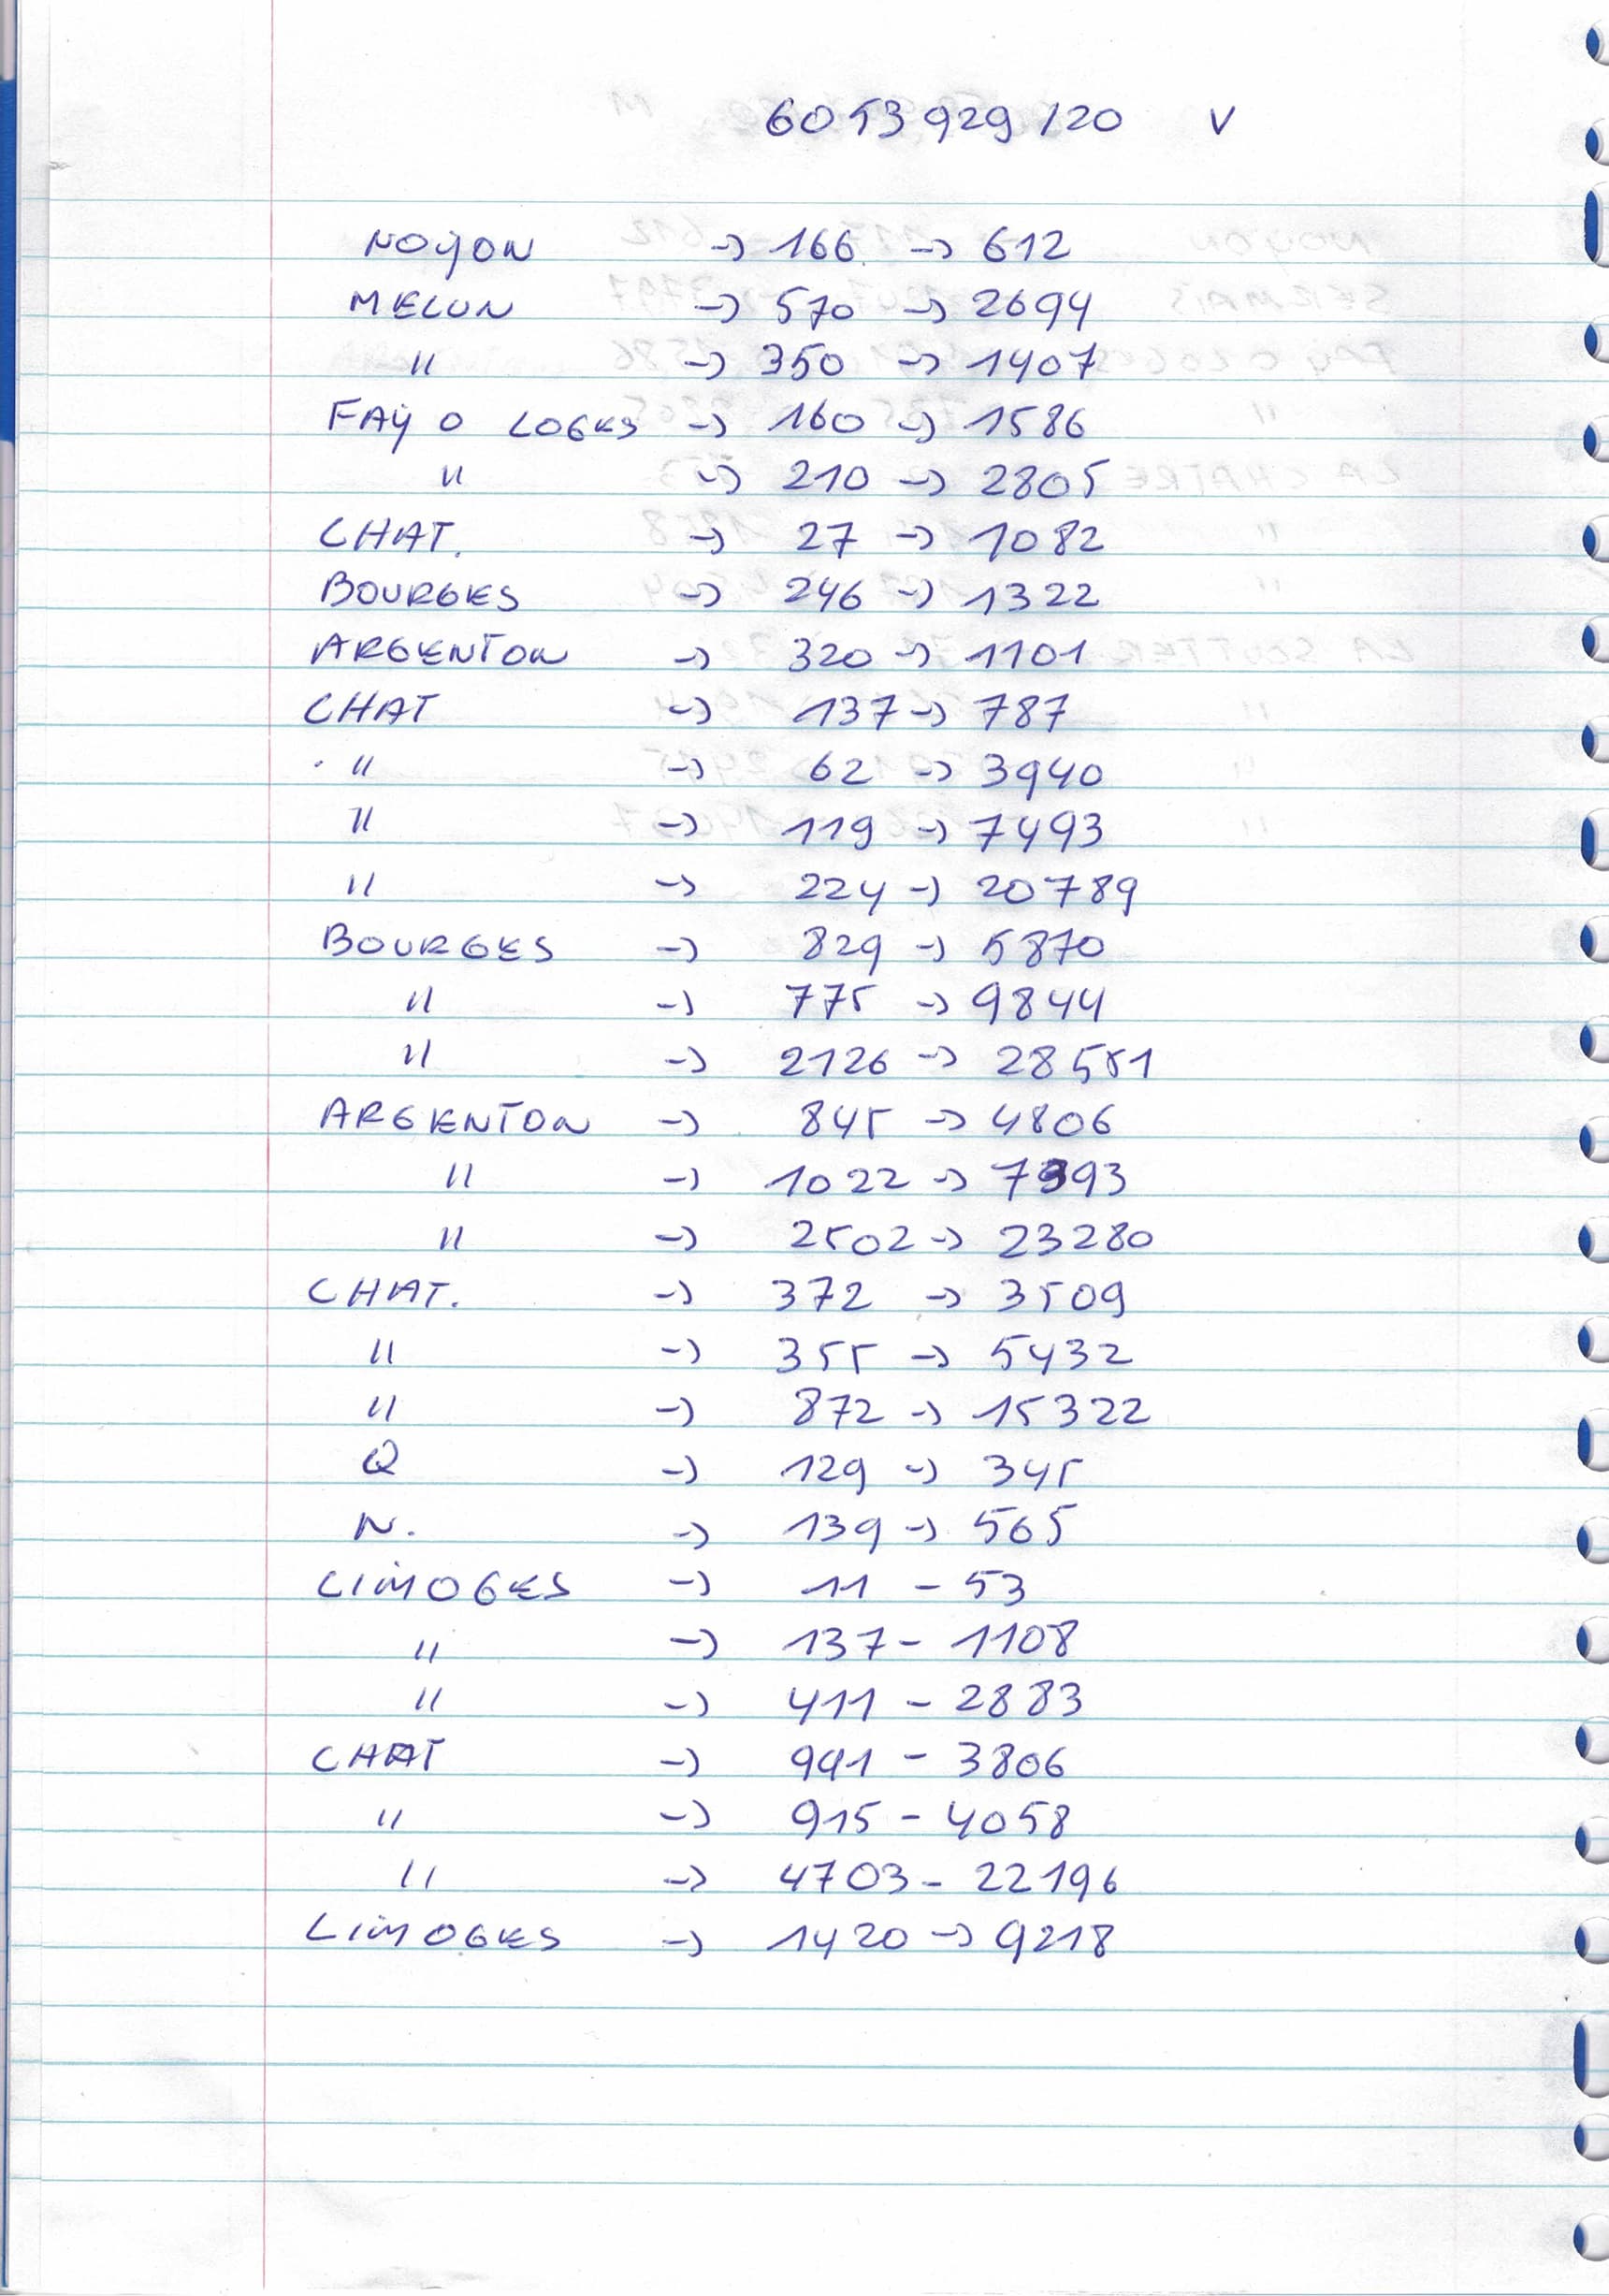 6053929/20 V
NOYON -> 166 -> 612
MELUN -> 570 -> 2694
" -> 350 -> 1407
FAY O LOGES -> 160 -> 1586
" -> 210 -> 2805
CHAT. -> 27 -> 1082
BOURGES -> 246 -> 1322
ARGENTON -> 320 -> 1101
CHAT -> 137 -> 787
" -> 62 -> 3940
" -> 119 -> 7493
" -> 224 -> 20789
BOURGES -> 829 -> 5870
" -> 775 -> 9844
" -> 2126 -> 28551
ARGENTON -> 845 -> 4806
" -> 1022 -> 7393
" -> 2502 -> 23280
CHAT. -> 372 -> 3509
" -> 355 -> 5432
" -> 872 -> 15322
Q -> 129 -> 345
N. -> 139 -> 565
LIMOGES -> 11 - 53
" -> 137 - 1108
" -> 411 - 2883
CHAT -> 991 - 3806
" -> 915 - 4058
" -> 4703 - 22196
LIMOGES -> 1420 -> 9218